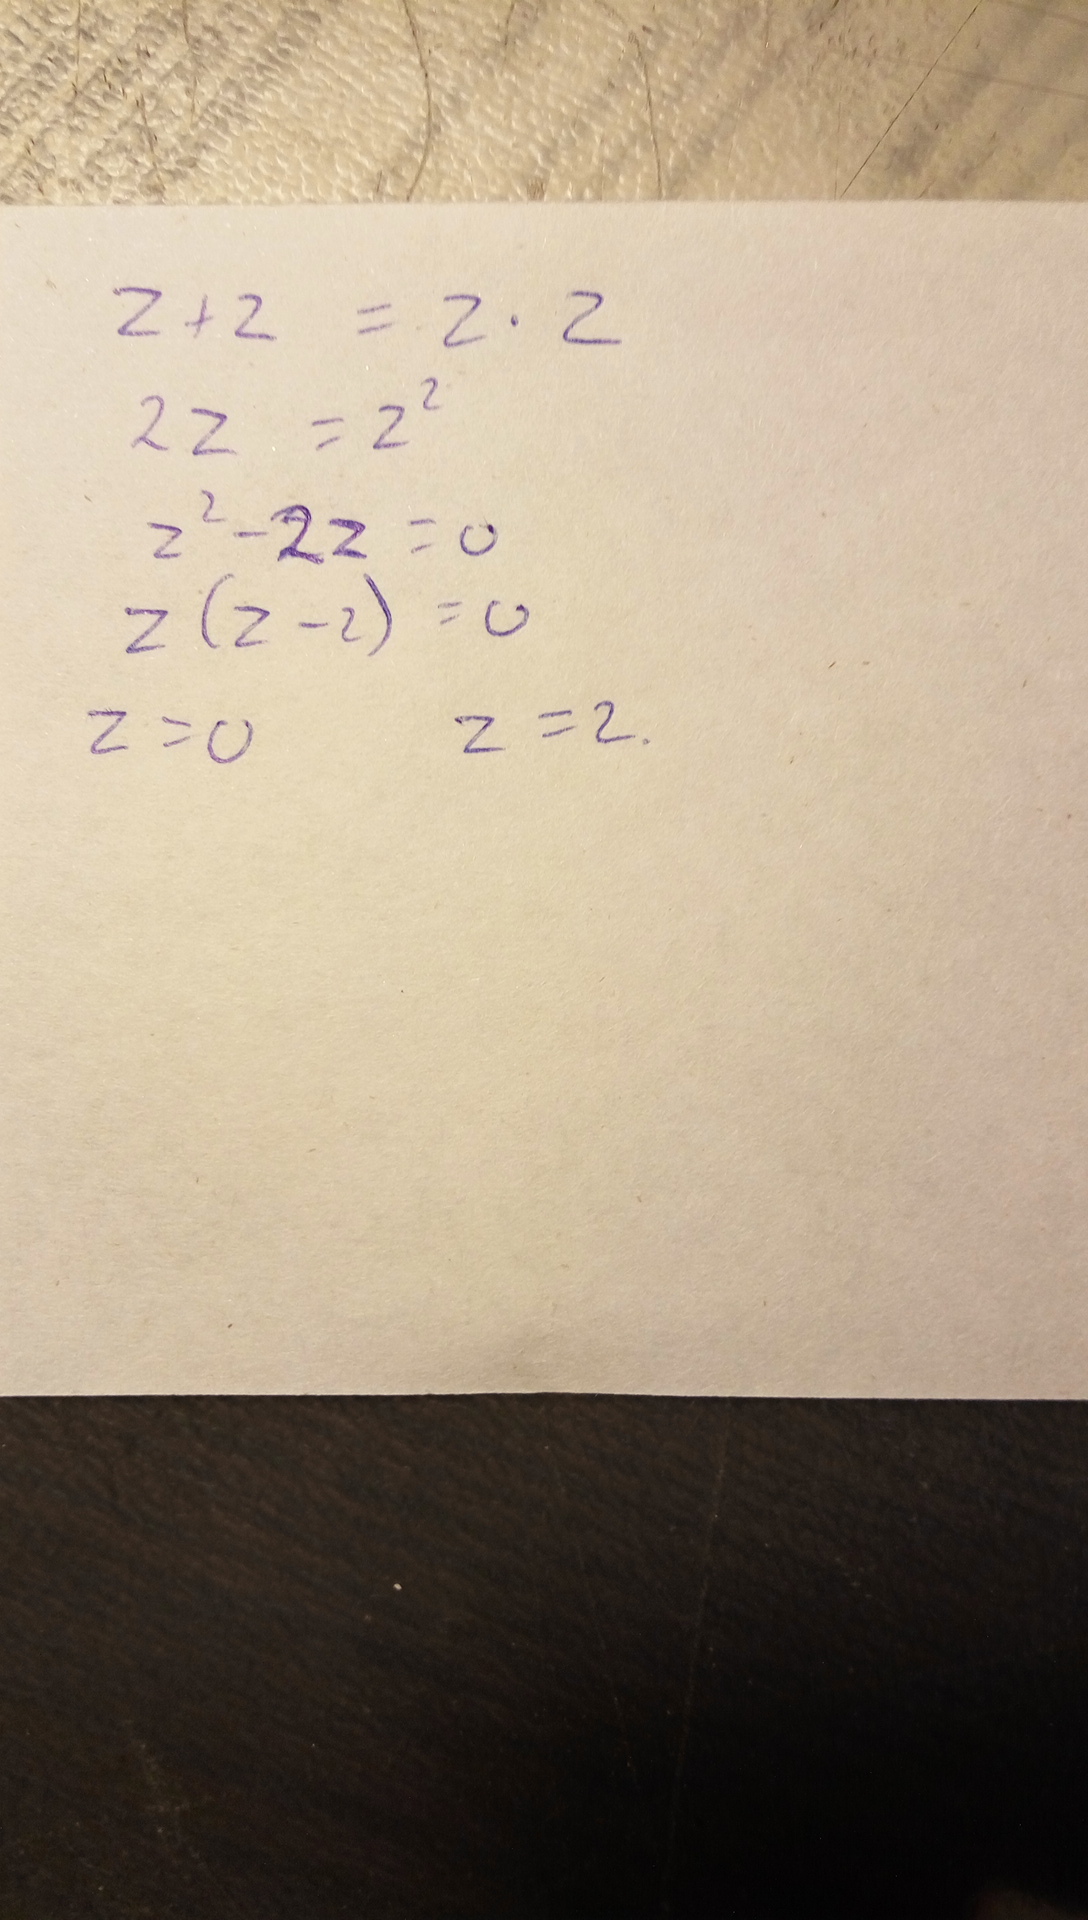 z+z = z · z
2z = z²
z²-2z = 0
z(z-2) = 0
z = 0 z = 2.